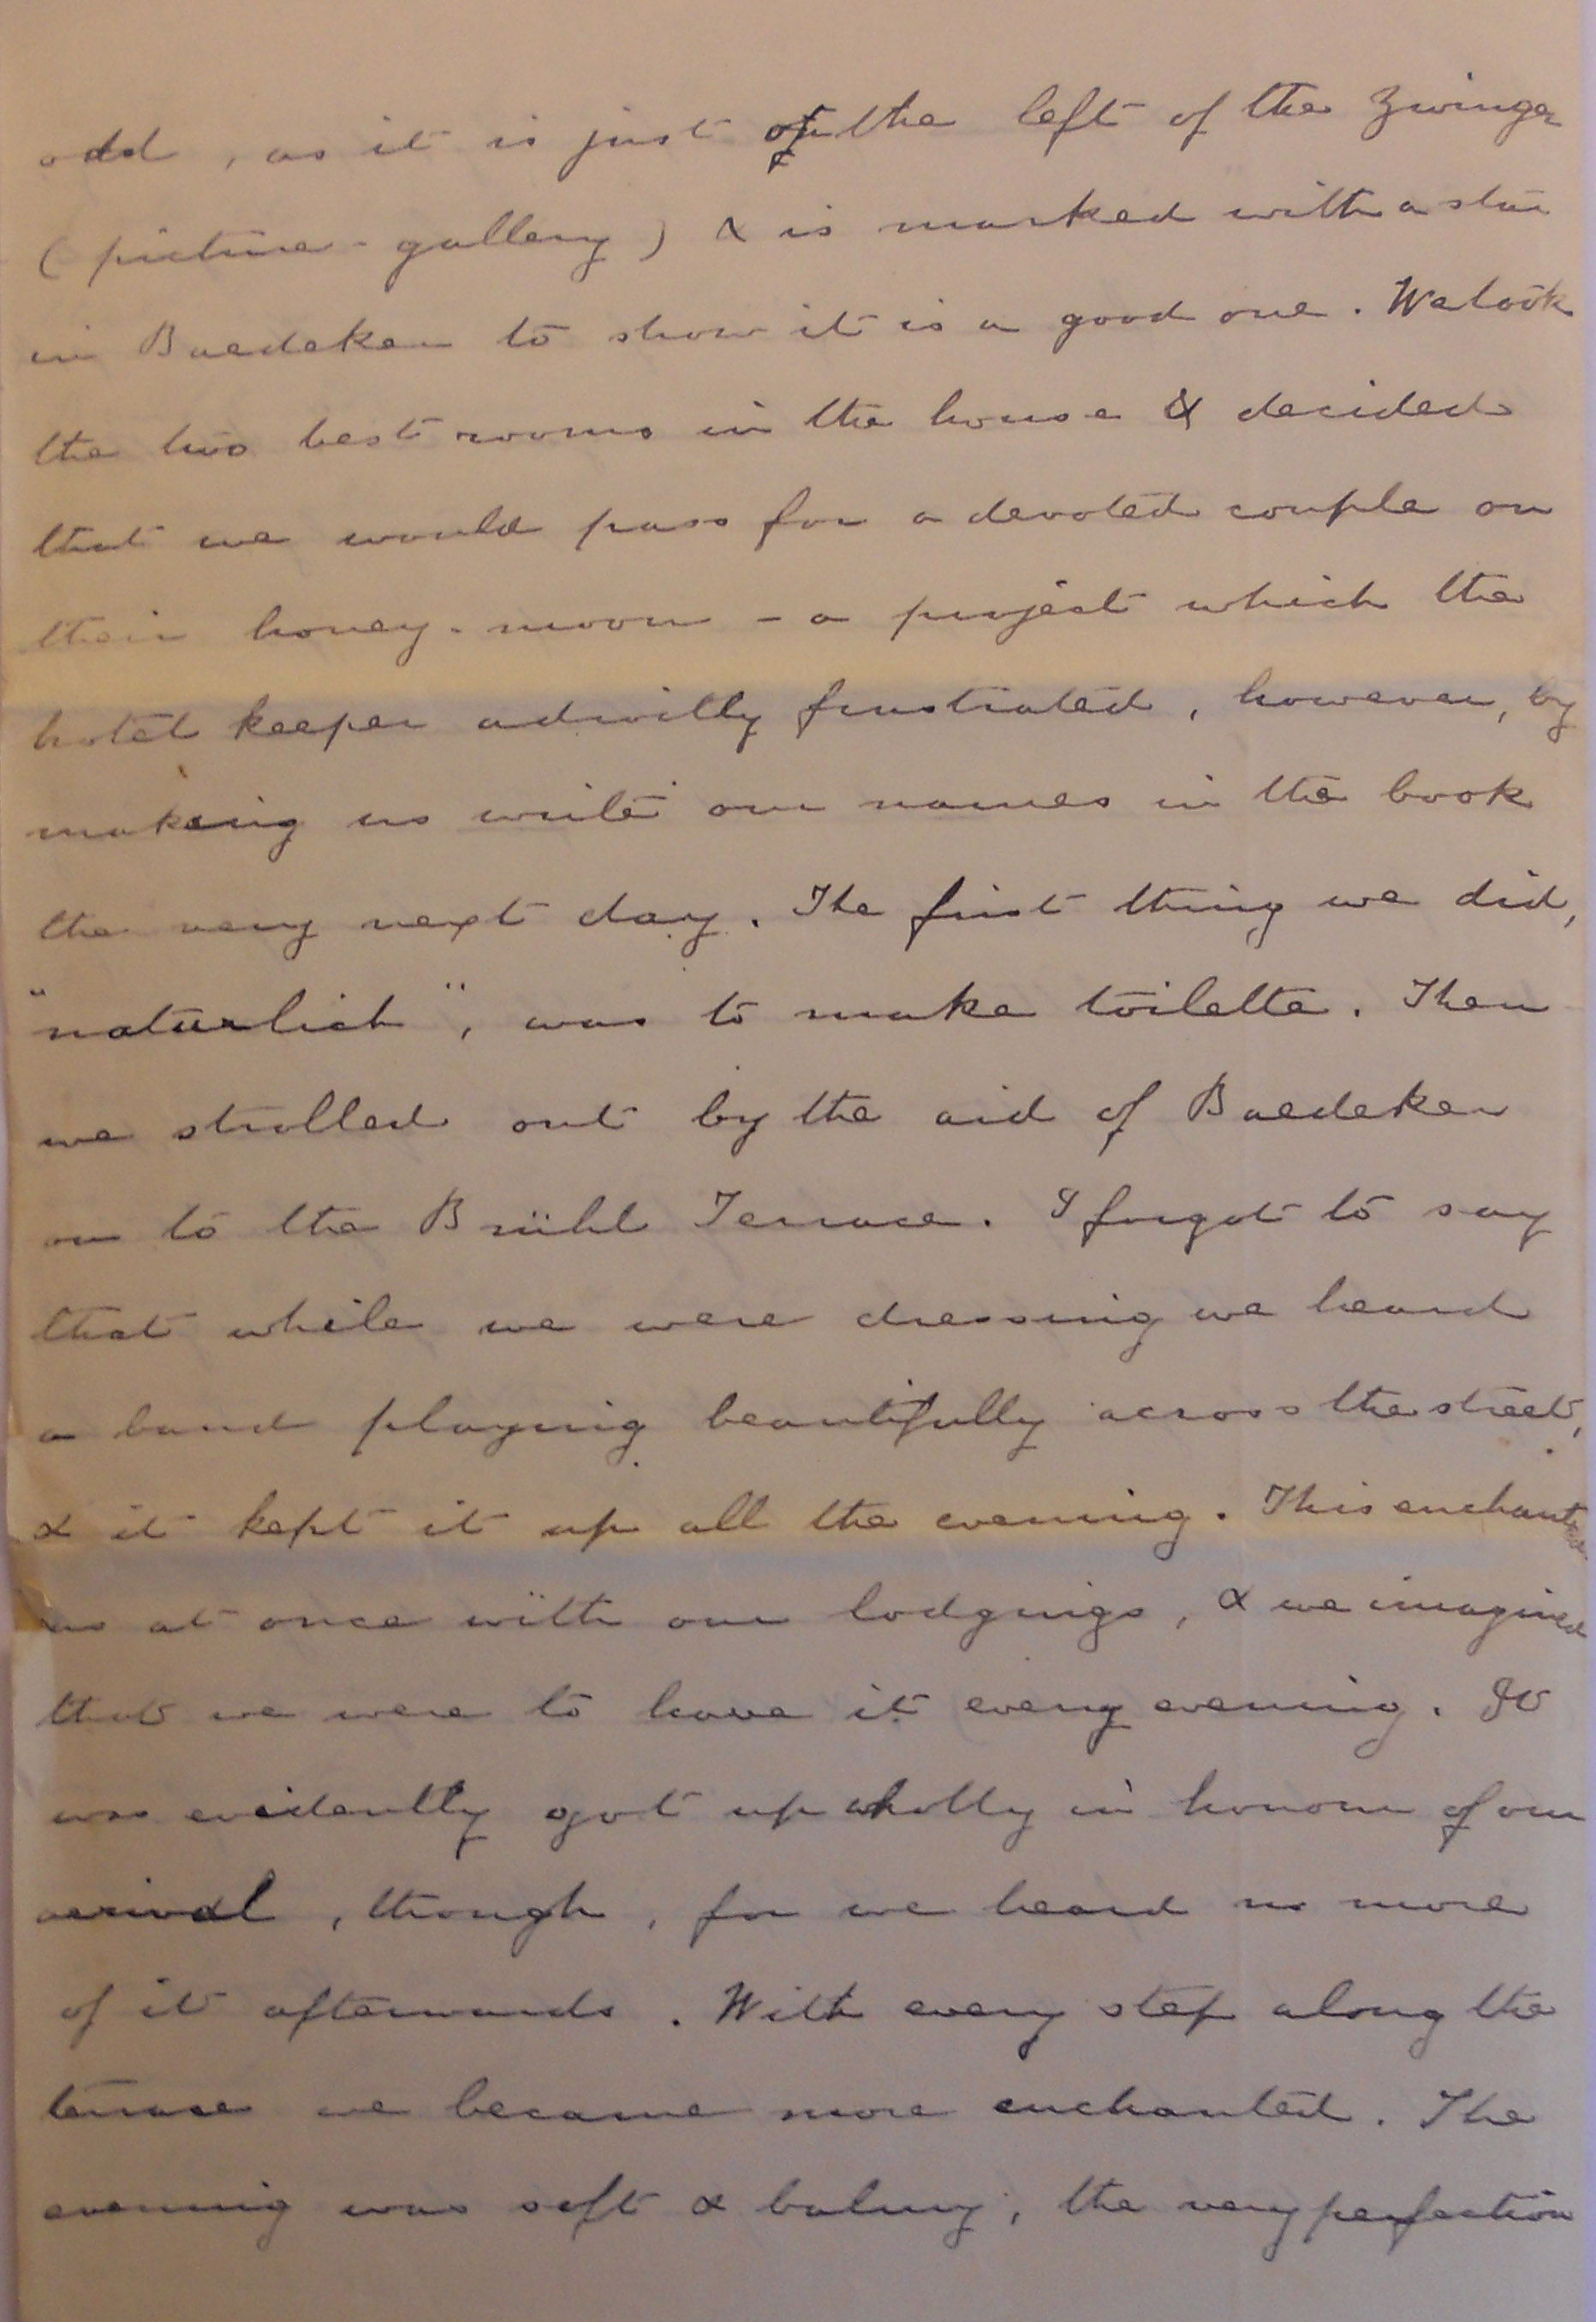 odd, as it is just on the left of the Zwinger
(picture-gallery) & is marked with a star
in Baedeker to show it is a good one. We took
the two best rooms in the house & decided
that we would pass for a devoted couple on
their honey-moon - a project which the
hotel keeper adroitly frustrated, however, by
making us write our names in the book
the very next day. The first thing we did,
"naturlich", was to make toilette. Then
we strolled out by the aid of Baedeker
on to the Brühl Terrace. I forgot to say
that while we were dressing we heard
a band playing beautifully across the street,
& it kept it up all the evening. This enchanted
us at once with our lodgings, & we imagined
that we were to have it every evening. It
was evidently got up wholly in honour of our
arrival, though, for we heard no more
of it afterwards. With every step along the
terrace we became more enchanted. The
evening was soft & balmy, the very perfection